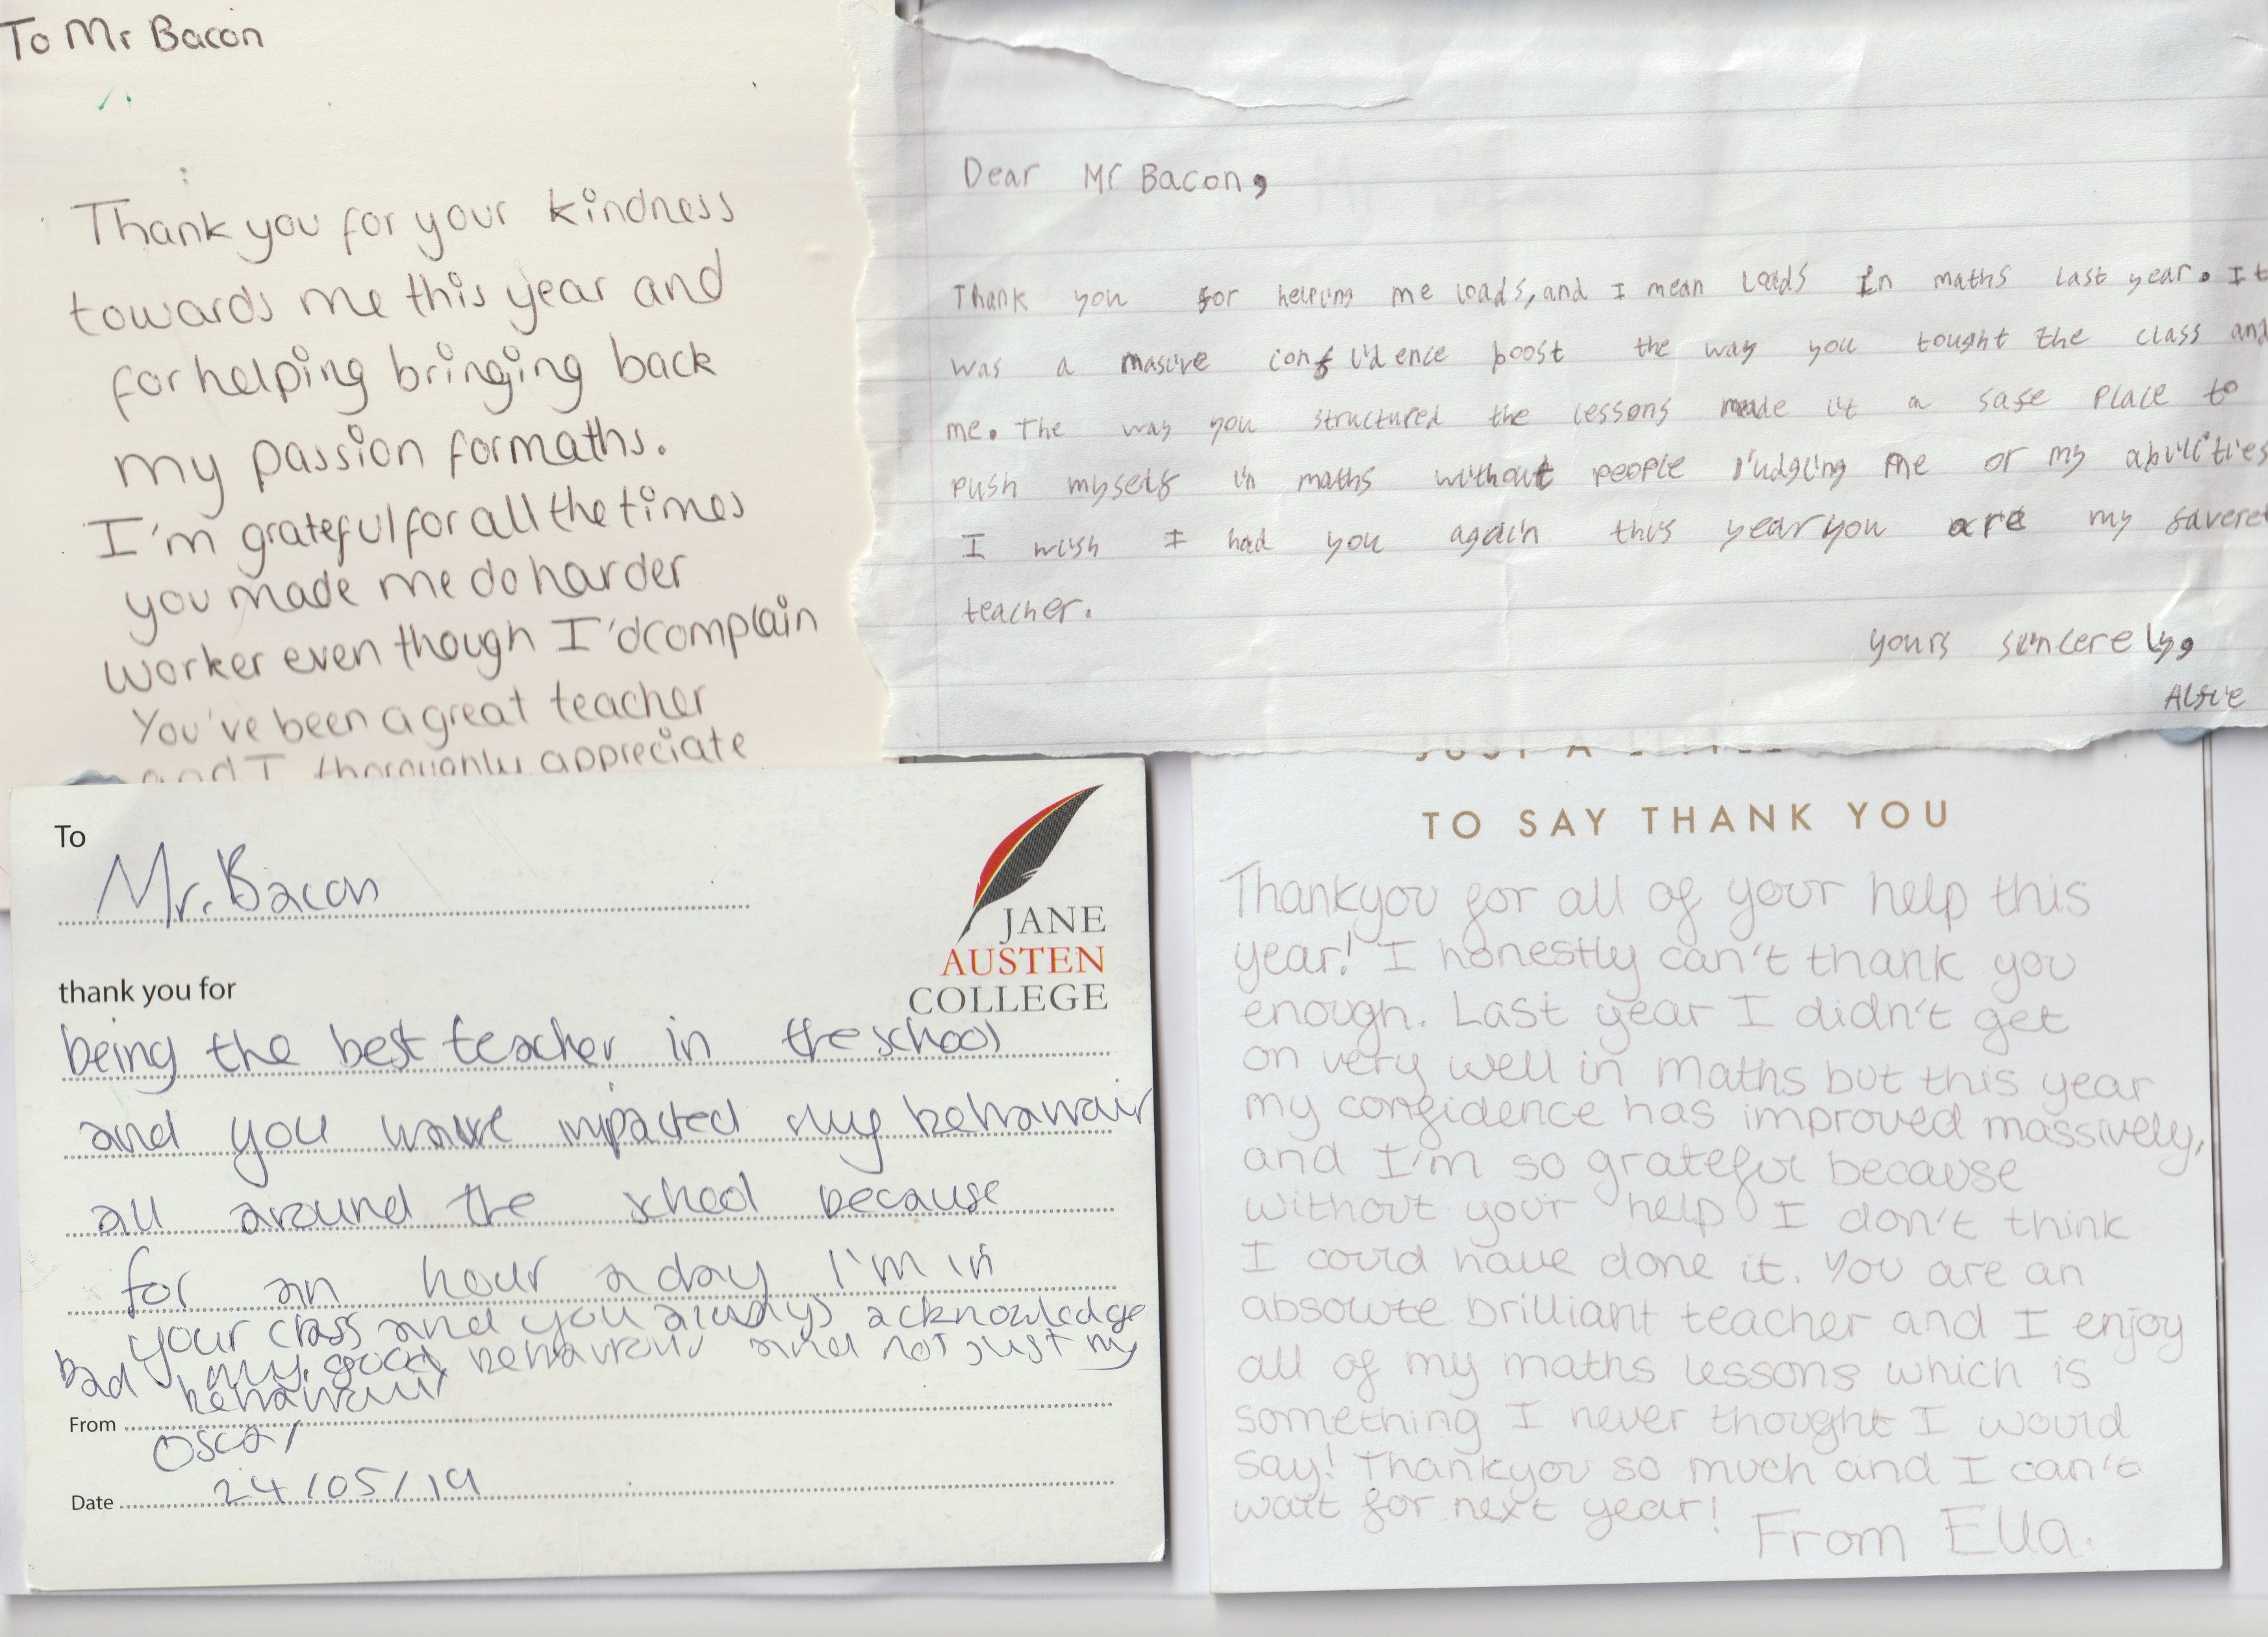 To Mr Bacon
Thank you for your kindness
towards me this year and
for helping bringing back
my passion for maths.
I'm grateful for all the times
you made me do harder
worker even though I'd complain
You've been a great teacher
and I thoroughly appreciate
Dear Mr Bacon,
Thank you for helping me loads, and I mean loads in maths last year. It
was a masive confidence boost the way you tought the class and
me. The way you structured the lessons made it a safe place to
push myself in maths without people judging me or my abilities
I wish I had you again this year you are my faveret
teacher.
yours sincerely,
Alfie
To
Mr. Bacon
JANE
AUSTEN
COLLEGE
thank you for
being the best teacher in the school
and you impacted my behavour
all around the school because
for an hour a day I'm in
your class and you always acknowledge
my good behaviour and not just my
bad behaviour
From
Oscar
Date 24/05/19
JUST A LITTLE
TO SAY THANK YOU
Thankyou for all of your help this
year! I honestly can't thank you
enough. Last year I didn't get
on very well in maths but this year
my confidence has improved massively,
and I'm so grateful because
without your help I don't think
I could have done it. You are an
absolute brilliant teacher and I enjoy
all of my maths lessons which is
something I never thought I would
say! Thankyou so much and I can't
wait for next year!
From Ella.